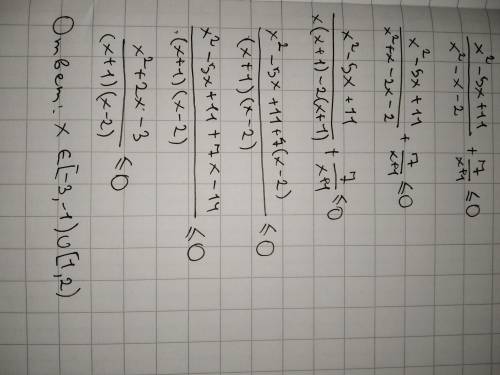 x² - 5x + 11 / x² - x - 2 + 7 / x+1 ≤ 0
x² - 5x + 11 / x² + x - 2x - 2 + 7 / x+1 ≤ 0
x² - 5x + 11 / x(x+1) - 2(x+1) + 7 / x+1 ≤ 0
x² - 5x + 11 + 7(x-2) / (x+1)(x-2) ≤ 0
x² - 5x + 11 + 7x - 14 / (x+1)(x-2) ≤ 0
x² + 2x - 3 / (x+1)(x-2) ≤ 0
Ответ: x ∈ [-3, -1) ∪ [1, 2)